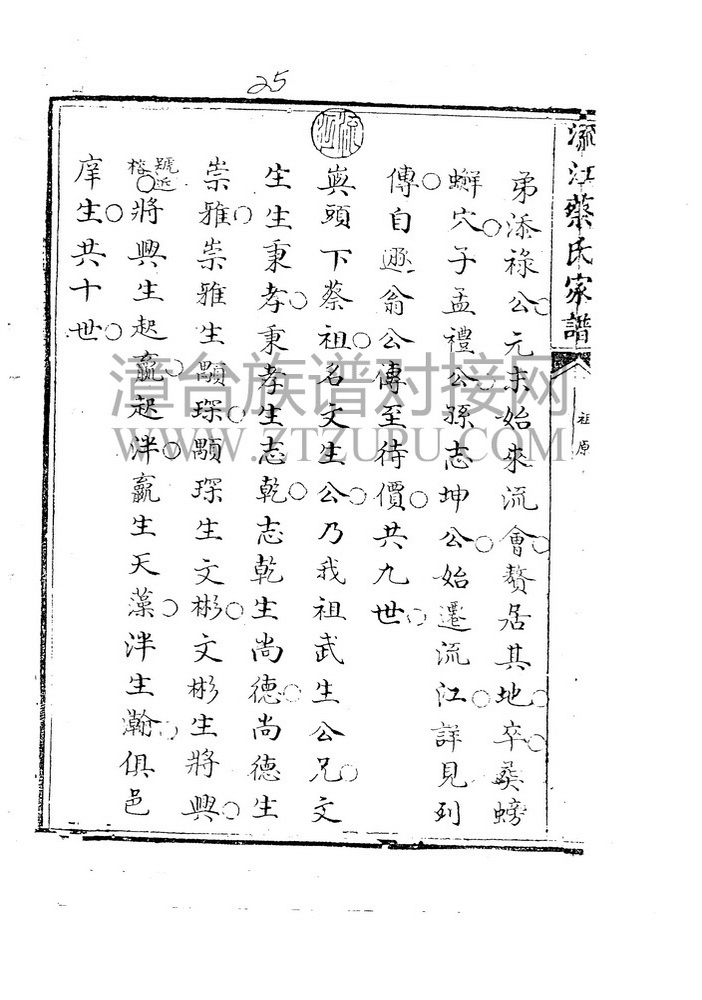 25
流江蔡氏家譜
祖原
弟添祿公元末始來流會贅居其地卒葬螃
蠏穴子孟禮公孫志坤公始遷流江詳見列
傳自遯翁公傳至待價共九世
與頭下蔡祖名文生公乃我祖武生公兄文
生生秉孝秉孝生志乾志乾生尚德尚德生
崇雅崇雅生顒琛顒琛生文彬文彬生將興
號近榕將興生起蠃起泮蠃生天藻泮生瀚俱邑
庠生共十世
流江
漳台族谱对接网
WWW.ZTZUPU.COM